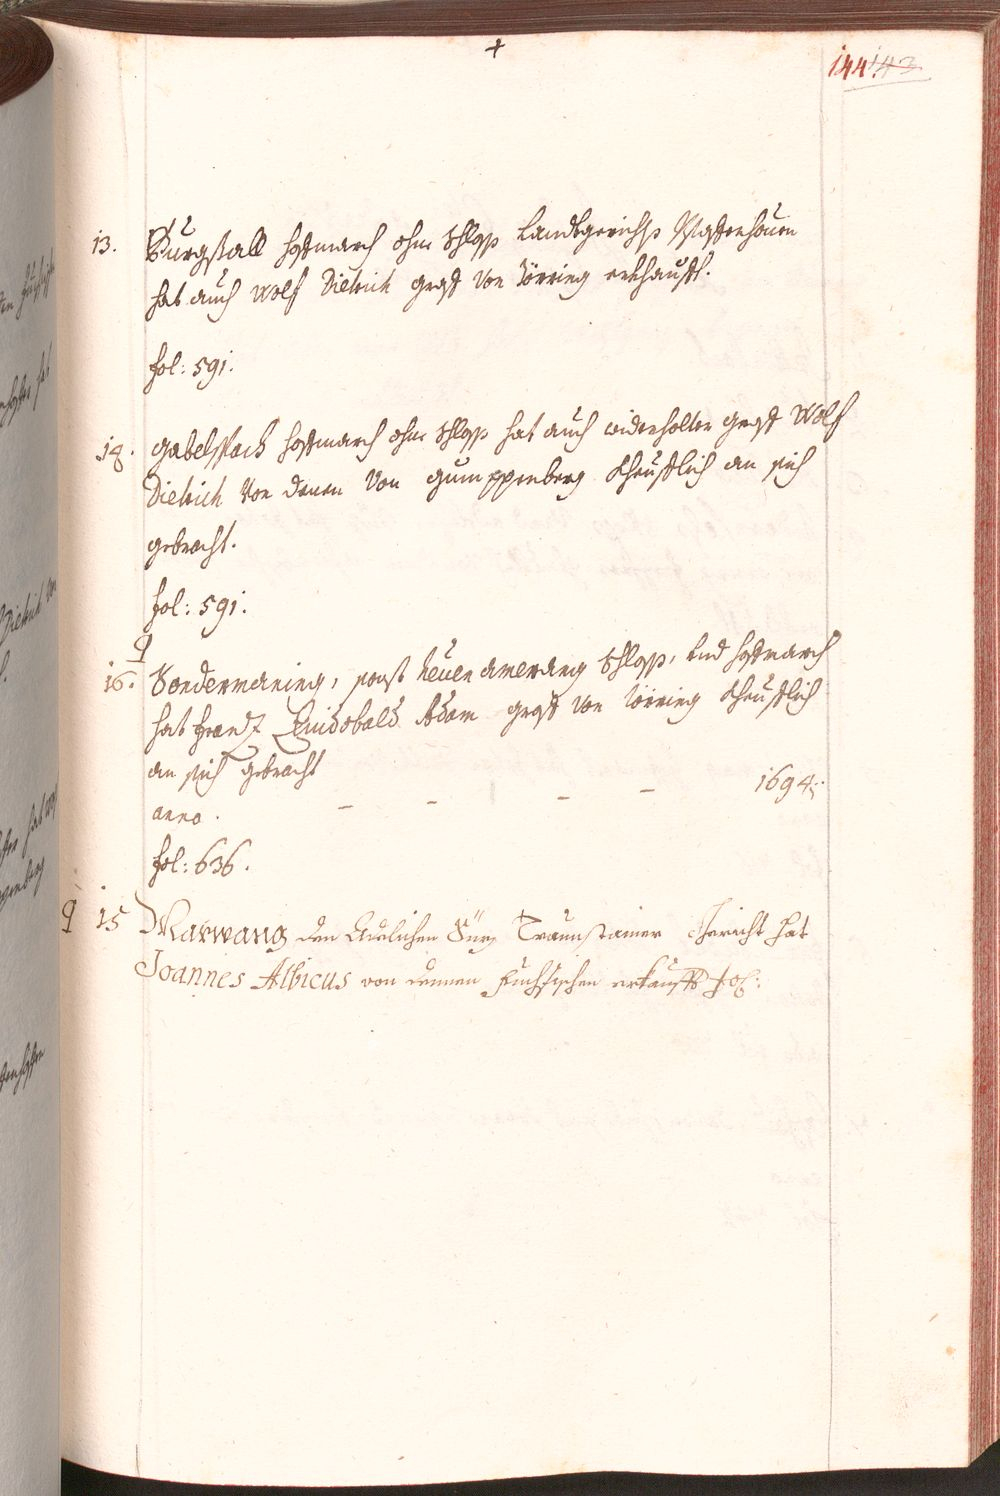 +
144 143
13. Burgstall hoffmarch ohne Schloß Landtgerichts Pfaffenhouen
hat auch Wolf Dietrich graff von Törring erkhaufft.
fol: 591.
14. Gabelspach hoffmarch ohne Schloß hat auch widerholter graff Wolf
Dietrich von denen von Gumppenberg kheufflich an sich
gebracht.
fol: 591.
16. Sondermaning, sonst Neuen Amerang Schloß, und hoffmarch
hat Frantz Quidobald Adam graff von Törring kheufflich
an sich gebracht
anno . – – – – 1694.
fol: 636.
15 Marwang den Adelichen Traunstainer Gericht hat
Joannes Albicus von dennen Fuchsischen erkaufft fol: